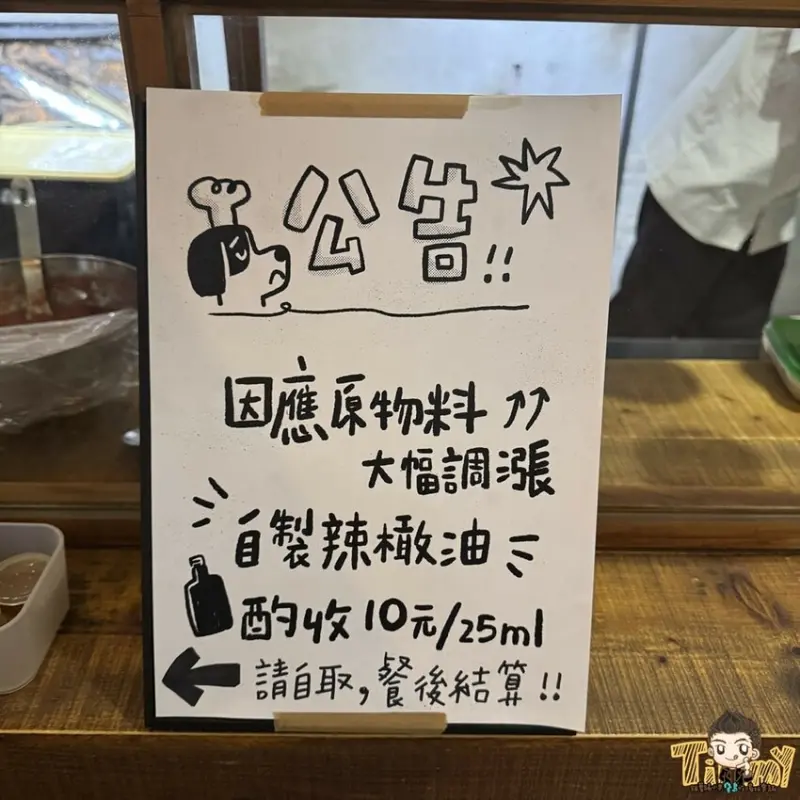 公告!!
因應原物料↑↑
大幅調漲
自製辣橄油
酌收10元/25ml
請自取,餐後結算!!